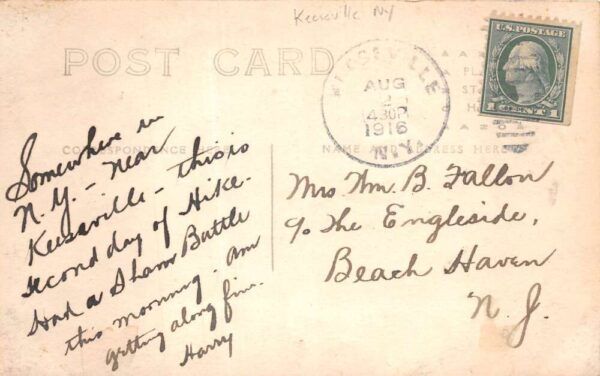 Keeseville NY
POST CARD
KEESEVILLE
AUG
2
430P
1916
N.Y.
U.S. POSTAGE
1 CENT 1
CORRESPONDENCE HERE
NAME AND ADDRESS HERE
Somewhere in
N.Y. - near
Keeseville - this is
second day of Hike.
Had a Sham Battle
this morning. Am
getting along fine.
Harry
Mrs Wm. B. Fallon
c/o The Engleside,
Beach Haven
N. J.